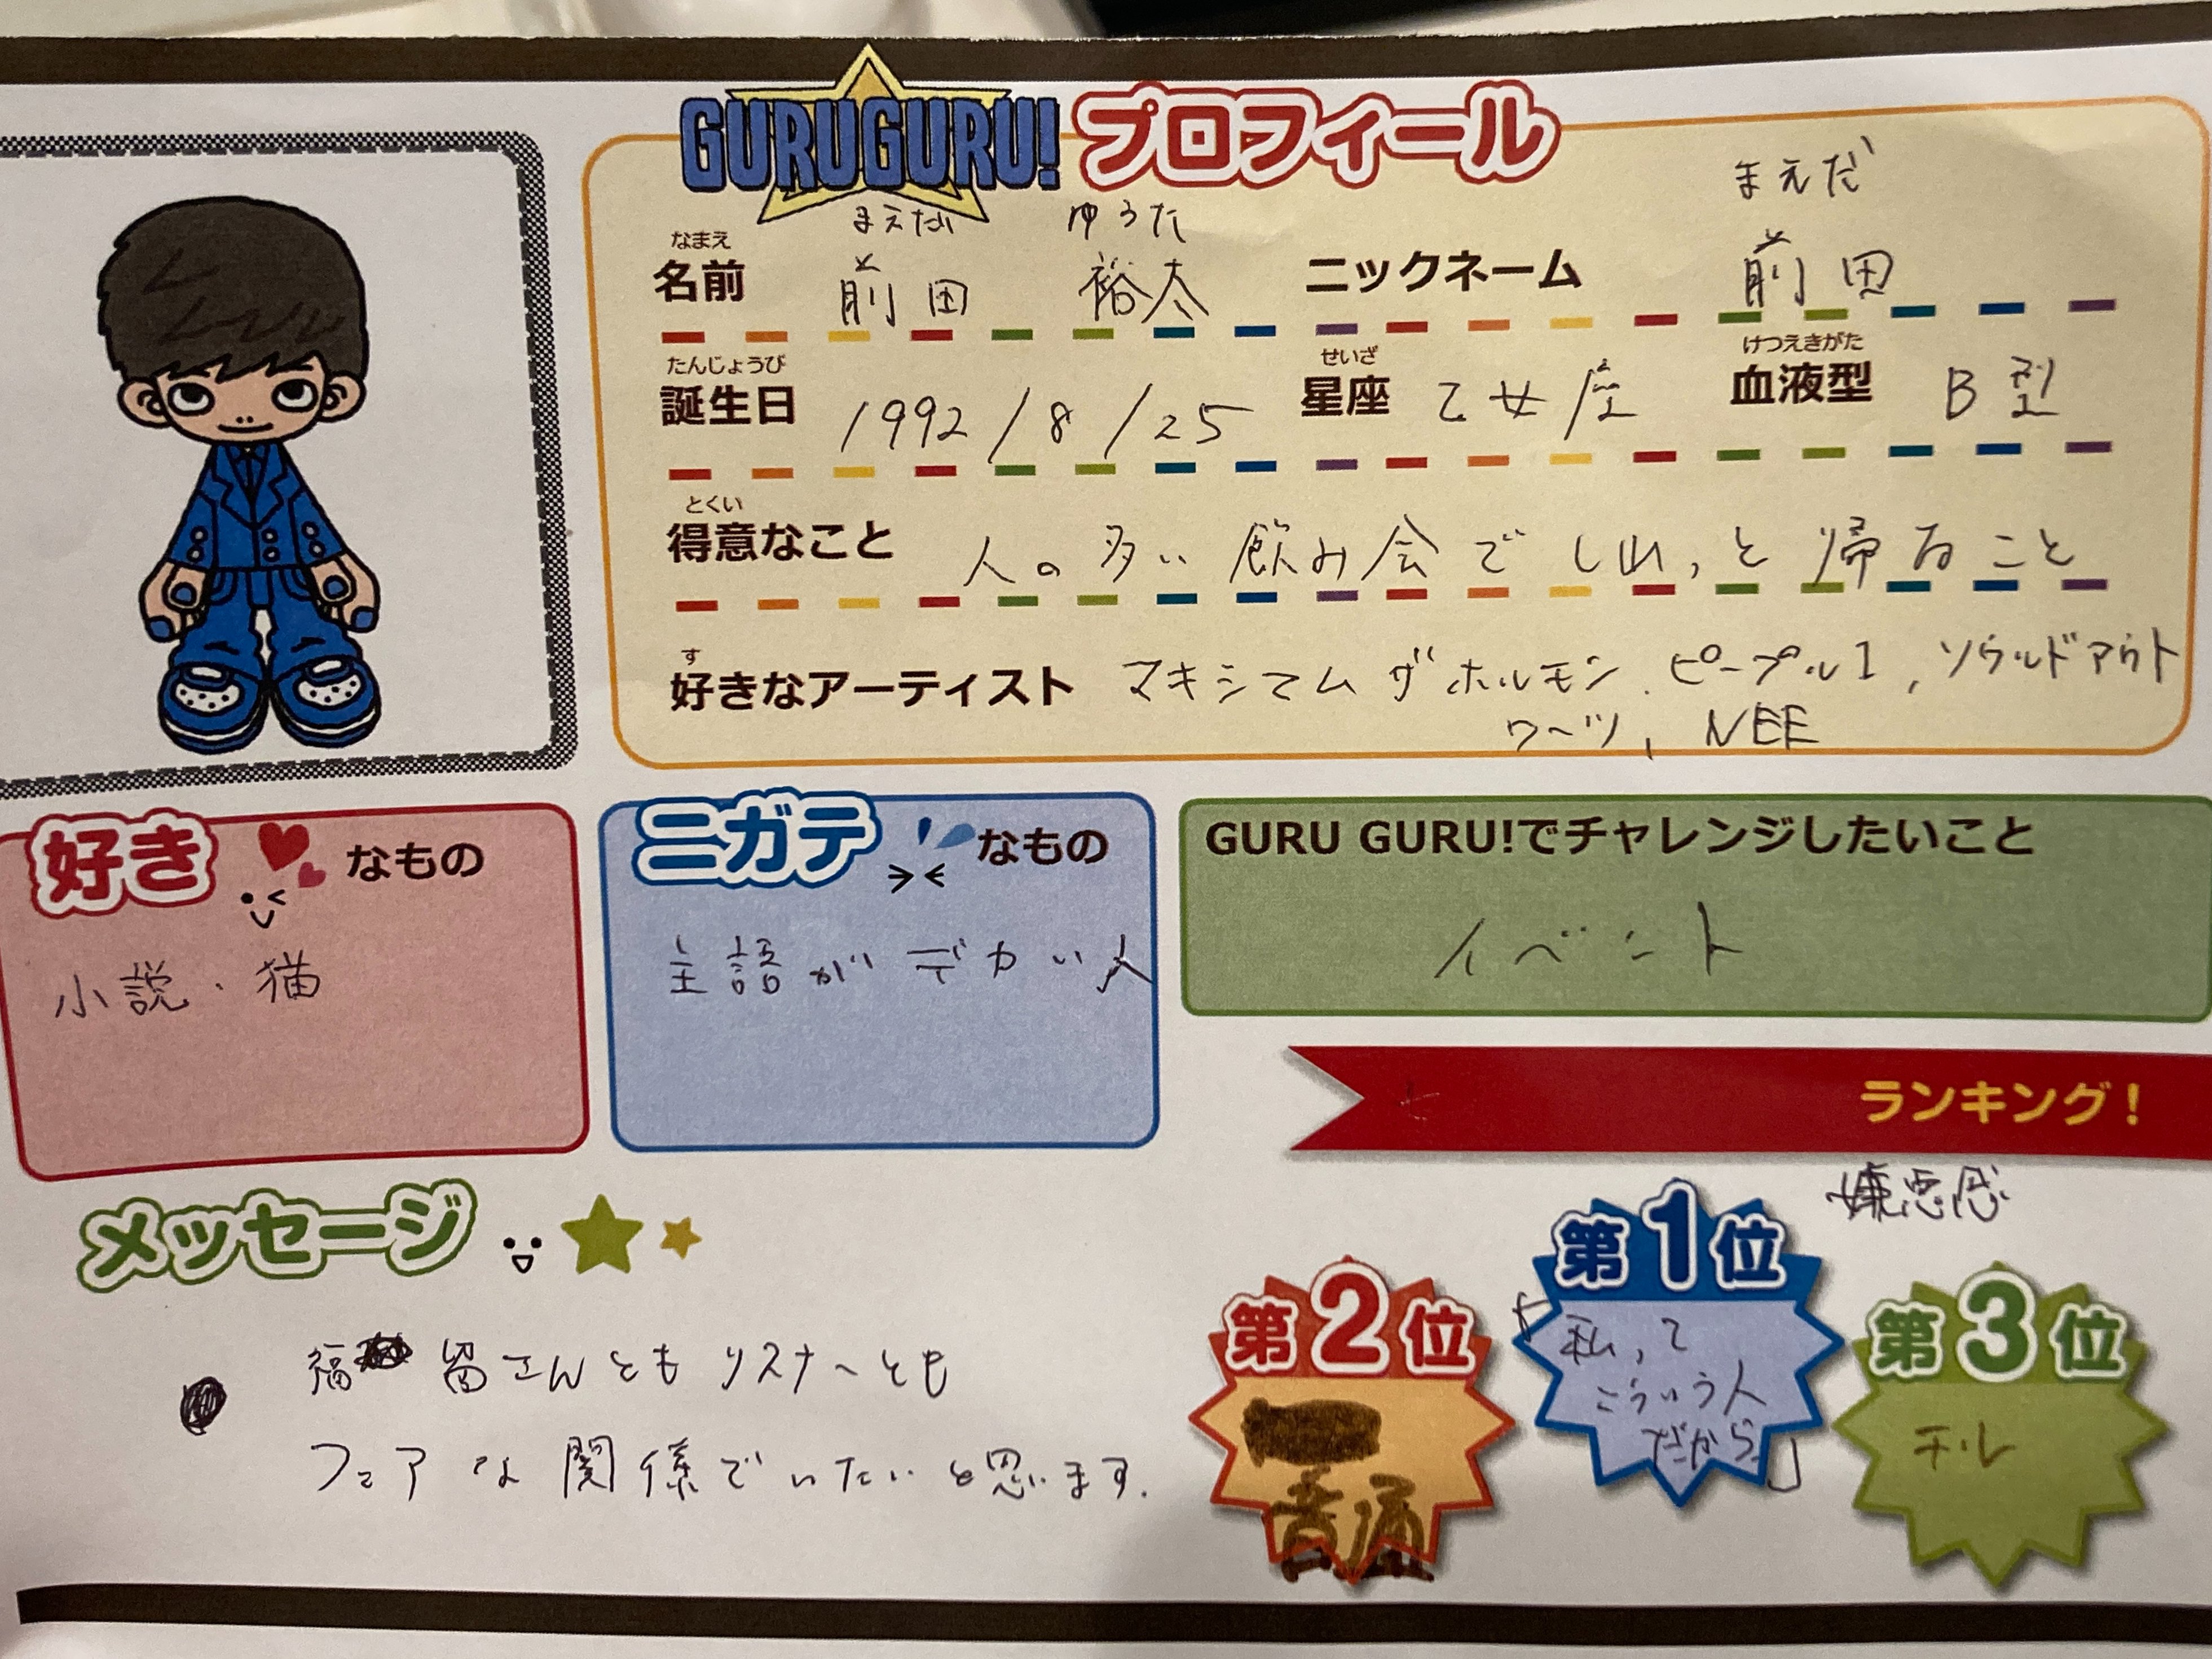 GURUGURU! プロフィール
なまえ
名前
まえだ ゆうた
前田 裕太
ニックネーム
まえだ
前田
たんじょうび
誕生日 1992/8/25
せいざ
星座 乙女座
けつえきがた
血液型 B型
とくい
得意なこと 人の多い飲み会でしれっと帰ること
す
好きなアーティスト マキシマムザホルモン、ピープル1、ソウルドアウト
ワーツ、NEE
好きなもの
小説・猫
ニガテなもの
主語がデカい人
GURU GURU!でチャレンジしたいこと
イベント
メッセージ
福留さんともリスナーとも
フェアな関係でいたいと思います.
ランキング!
嫌悪感
第1位
「私って
こういう人
だから」
第2位
普通
第3位
チル